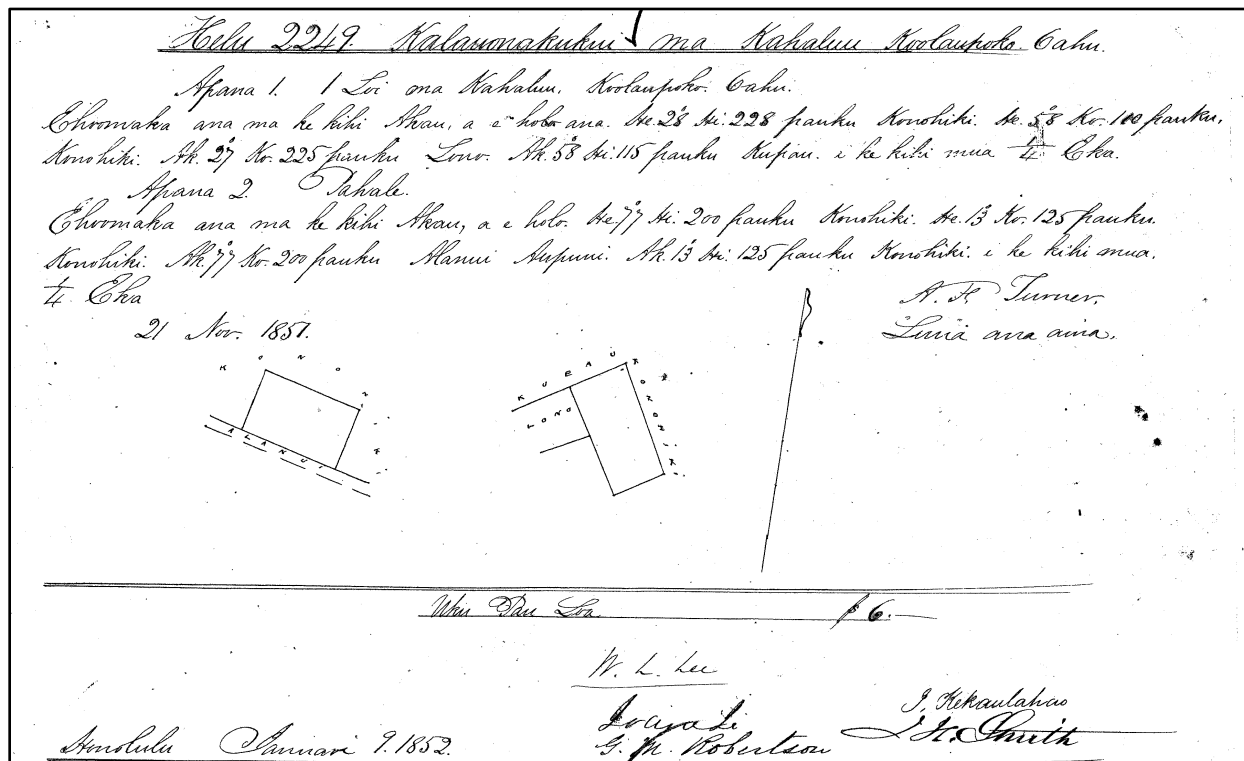 Helu 2249. Kalauonakukui ma Kahaluu Koolaupoko. Oahu.
Apana 1. 1 Loi ma Kahaluu. Koolaupoko. Oahu.
Ehoomaka ana ma ke kihi Akau, a e holo ana. He. 28° Hi. 228 pauku Konohiki. He. 58° Ko. 100 pauku.
Konohiki. Ak. 27° Ko. 225 pauku Lono. Ak. 58° Hi. 115 pauku Kupau. i ke kihi mua 1/4 Eka.
Apana 2. Pahale.
Ehoomaka ana ma ke kihi Akau, a e holo. He. 77° Hi. 200 pauku Konohiki. He. 13° Ko. 125 pauku.
Konohiki. Ak. 77° Ko. 200 pauku Alanui Aupuni. Ak. 13° Hi. 125 pauku Konohiki. i ke kihi mua.
1/4 Eka
A. F. Turner.
21 Nov. 1851.
Luna ana aina.
KONOHIKI
ALANUI
KUEAU
LONO
KONOHIKI
Uku Pau Loa $6.—
W. L. Lee
Ioane Ii
J. Kekaulahao
Honolulu Januari 9. 1852.
G. M. Robertson
J. H. Smith